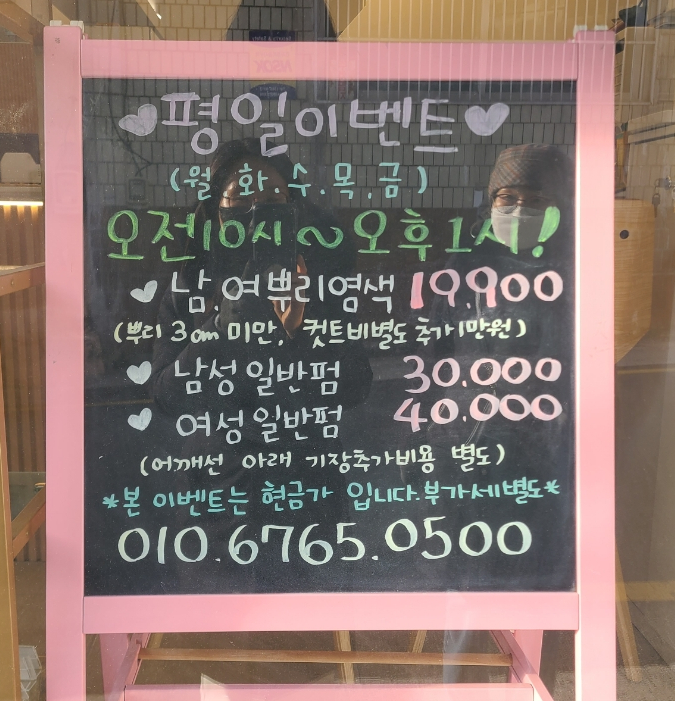 ♥평일이벤트♥
(월.화.수.목.금)
오전10시~오후1시!
♥ 남.여뿌리염색 19.900
(뿌리 3cm 미만, 컷트비별도 추가1만원)
♥ 남성일반펌 30.000
♥ 여성일반펌 40.000
(어깨선 아래 기장추가비용 별도)
*본 이벤트는 현금가 입니다.부가세별도*
010.6765.0500